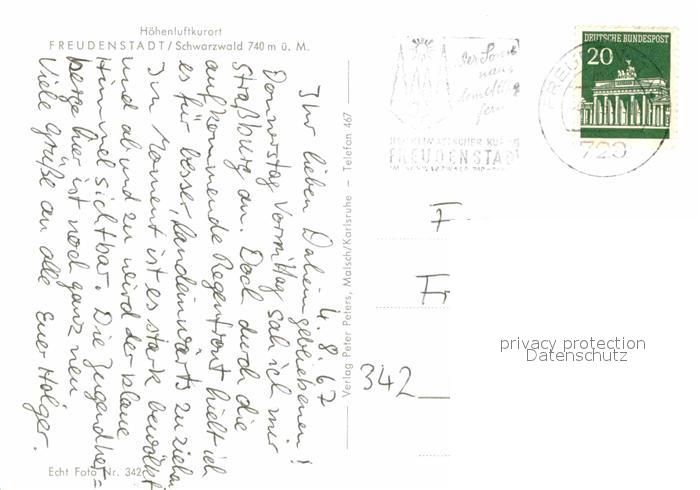 Höhenluftkurort
FREUDENSTADT/Schwarzwald 740 m ü. M.
4. 8. 67
Ihr lieben Daheimgebliebenen!
Donnerstag Vormittag sah ich mir
Straßburg an. Doch durch die
aufkommende Regenfront hielt ich
es für besser, landeinwärts zu ziehen
Im Moment ist es stark bewölkt
und ab und zu wird der blaue
Himmel sichtbar. Die Jugendher=
berge hier ist noch ganz neu
Viele Grüße an alle Euer Holger.
Echt Foto Nr. 342
Verlag Peter Peters, Malsch/Karlsruhe – Telefon 467
Der Sonne
FREUDENSTADT
FREU
729
DEUTSCHE BUNDESPOST
20
F
Fr
342
privacy protection
Datenschutz